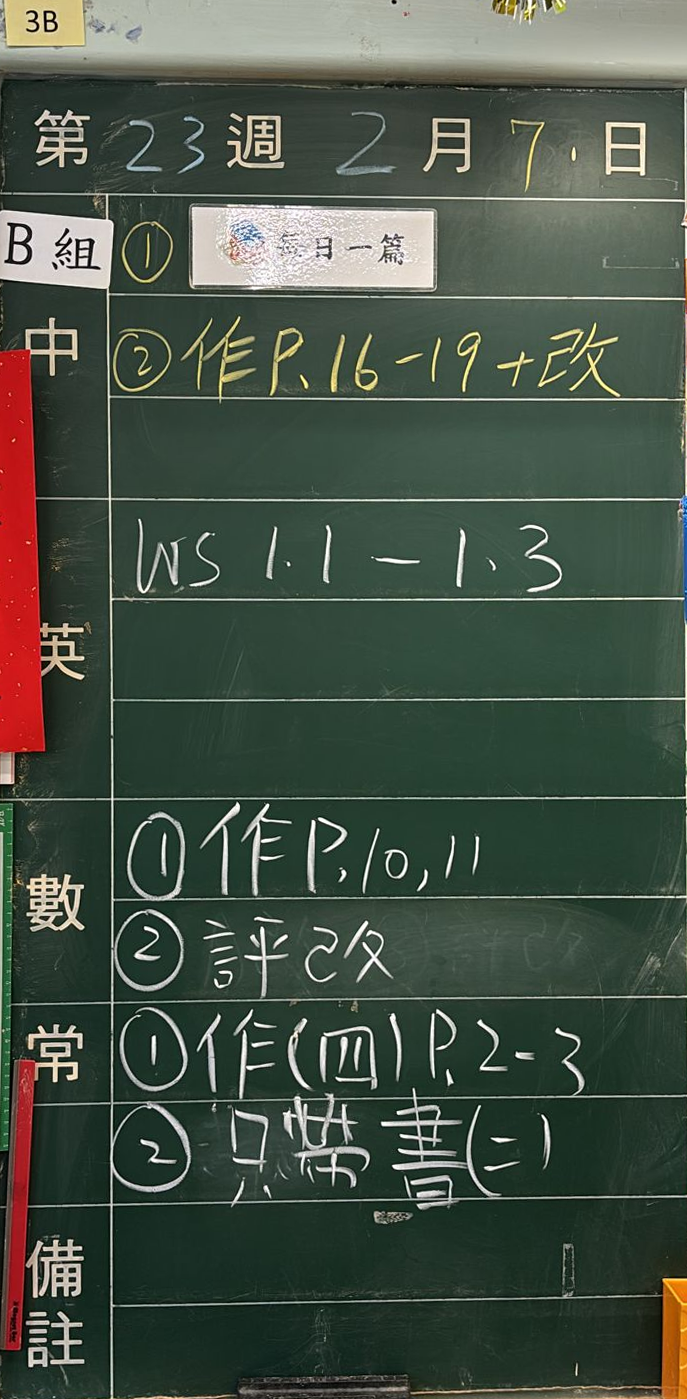 3B
第 23 週 2 月 7 日
B 組 ① 每日一篇
中 ② 作 P.16-19 + 改
英 WS 1.1 - 1.3
數 ① 作 P.10,11
② 評改
常 ① 作(四) P.2-3
② 只帶書(二)
備註